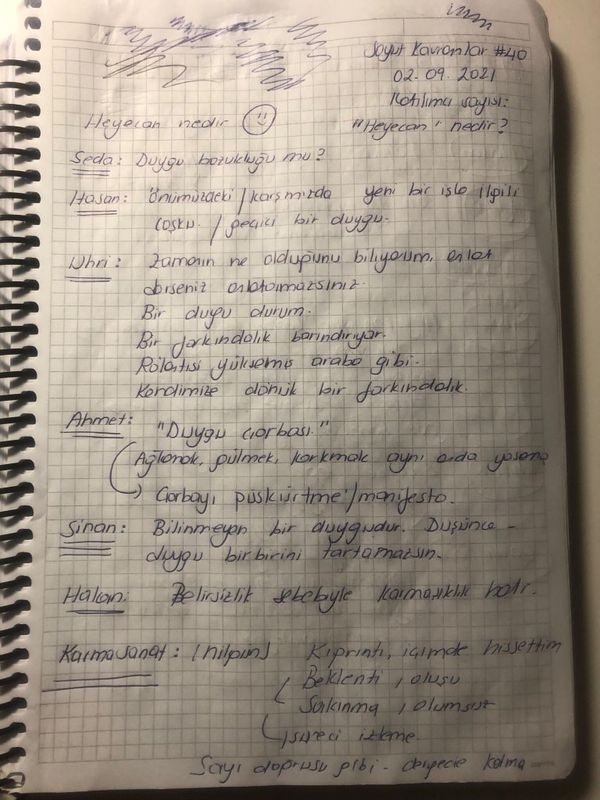 Soyut Kavramlar #40
02.09.2021
Katılımcı sayısı:
Heyecan nedir
"Heyecan" nedir?
Seda: Duygu bozukluğu mu?
Hasan: Önümüzdeki / karşımızda yeni bir işle ilgili
coşku. / geçici bir duygu.
Zamanın ne olduğunu biliyorum, anlat
derseniz anlatamazsınız.
Bir duygu durum.
Bir farkındalık barındırıyor.
Rölantisi yükselmiş araba gibi.
Kendimize dönük bir farkındalık.
Ahmet: "Duygu çorbası."
Ağlamak, gülmek, korkmak aynı anda yaşama
Çorbayı püskürtme / manifesto.
Sinan: Bilinmeyen bir duygudur. Düşünce -
duygu birbirini tartamazsın.
Hakan: Belirsizlik sebebiyle karmaşıklık hali.
Karmasanat: (Nilgün) Kıpırtı, içimde hissettim
Beklenti, oluşu
Sakınma, olumsuz
süreci izleme.
Sayı doğrusu gibi - derecele kalma